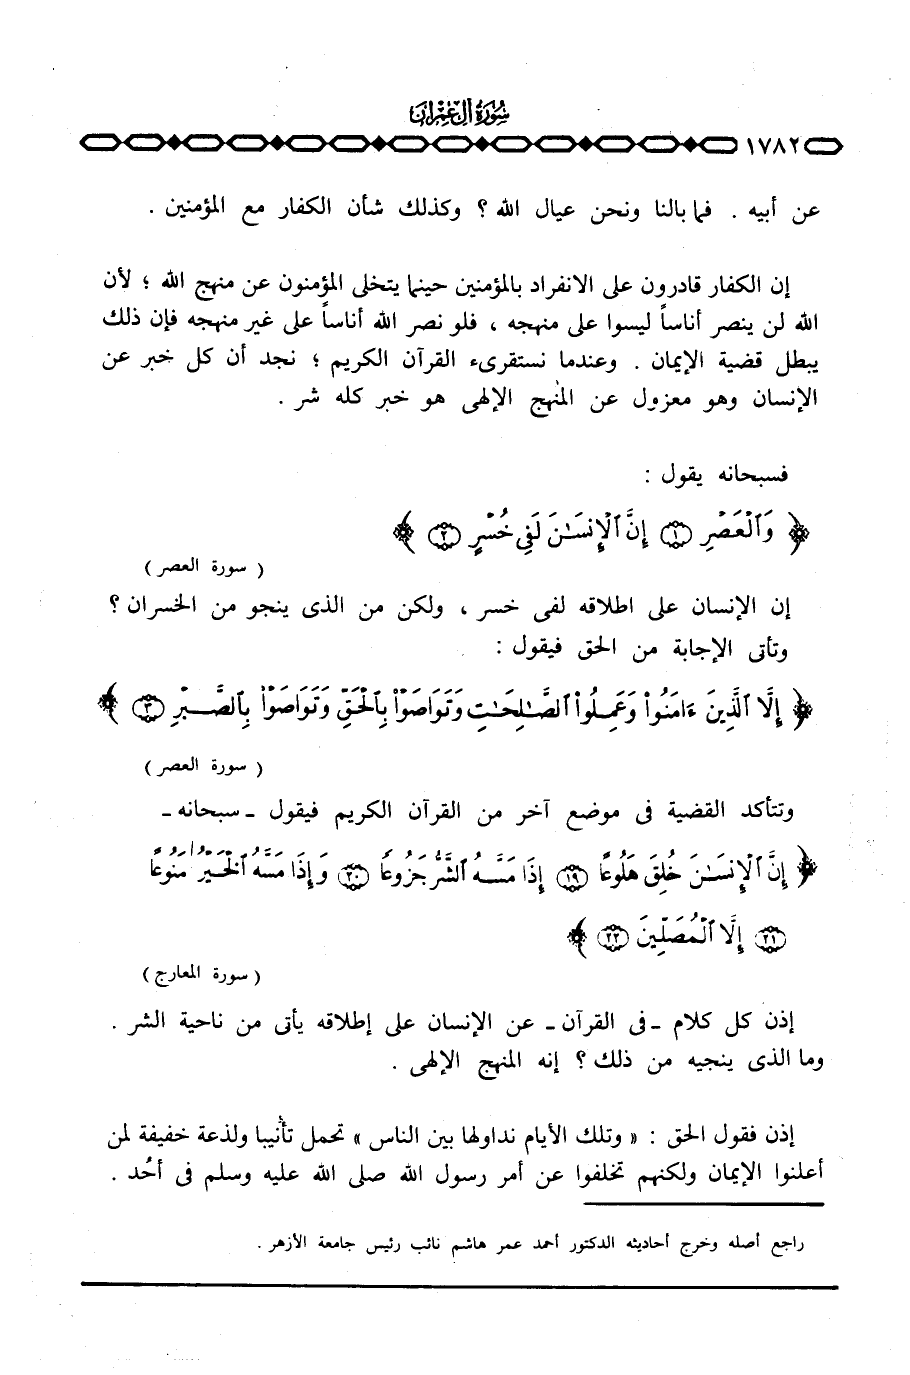 سورة آل عمران
١٧٨٢
عن أبيه . فما بالنا ونحن عيال الله ؟ وكذلك شأن الكفار مع المؤمنين .
إن الكفار قادرون على الانفراد بالمؤمنين حينما يتخلى المؤمنون عن منهج الله ؛ لأن
الله لن ينصر أناساً ليسوا على منهجه ، فلو نصر الله أناساً على غير منهجه فإن ذلك
يبطل قضية الإيمان . وعندما نستقرىء القرآن الكريم ؛ نجد أن كل خبر عن
الإنسان وهو معزول عن المنهج الإلهى هو خبر كله شر .
فسبحانه يقول :
﴿ وَٱلْعَصْرِ ١ إِنَّ ٱلْإِنسَٰنَ لَفِى خُسْرٍ ٢ ﴾
( سورة العصر )
إن الإنسان على اطلاقه لفى خسر ، ولكن من الذى ينجو من الخسران ؟
وتأتى الإجابة من الحق فيقول :
﴿ إِلَّا ٱلَّذِينَ ءَامَنُوا۟ وَعَمِلُوا۟ ٱلصَّٰلِحَٰتِ وَتَوَاصَوْا۟ بِٱلْحَقِّ وَتَوَاصَوْا۟ بِٱلصَّبْرِ ٣ ﴾
( سورة العصر )
وتتأكد القضية فى موضع آخر من القرآن الكريم فيقول ـ سبحانه ـ
﴿ إِنَّ ٱلْإِنسَٰنَ خُلِقَ هَلُوعًا ١٩ إِذَا مَسَّهُ ٱلشَّرُّ جَزُوعًا ٢٠ وَإِذَا مَسَّهُ ٱلْخَيْرُ مَنُوعًا
٢١ إِلَّا ٱلْمُصَلِّينَ ٢٢ ﴾
( سورة المعارج )
إذن كل كلام ـ فى القرآن ـ عن الإنسان على إطلاقه يأتى من ناحية الشر .
وما الذى ينجيه من ذلك ؟ إنه المنهج الإلهى .
إذن فقول الحق : « وتلك الأيام نداولها بين الناس » تحمل تأنيبا ولذعة خفيفة لمن
أعلنوا الإيمان ولكنهم تخلفوا عن أمر رسول الله صلى الله عليه وسلم فى أحُد .
راجع أصله وخرج أحاديثه الدكتور أحمد عمر هاشم نائب رئيس جامعة الأزهر .